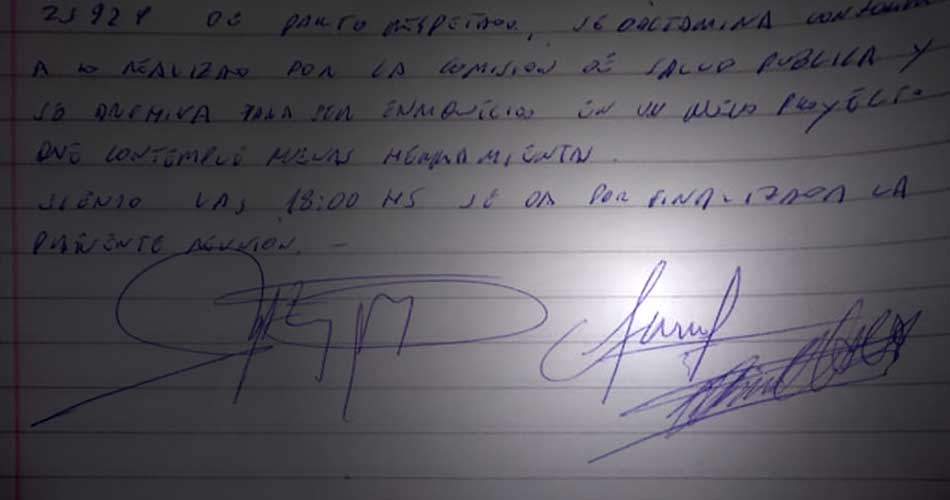 DE PARTO RESPETADO, SE DICTAMINA CONFORME
A LO REALIZADO POR LA COMISION DE SALUD PUBLICA Y
SE PARA SER EN UN NUEVO PROYECTO
QUE CONTEMPLE NUEVAS HERRAMIENTAS.
SIENDO LAS 18:00 HS SE DA POR FINALIZADA LA
PRESENTE REUNION. -